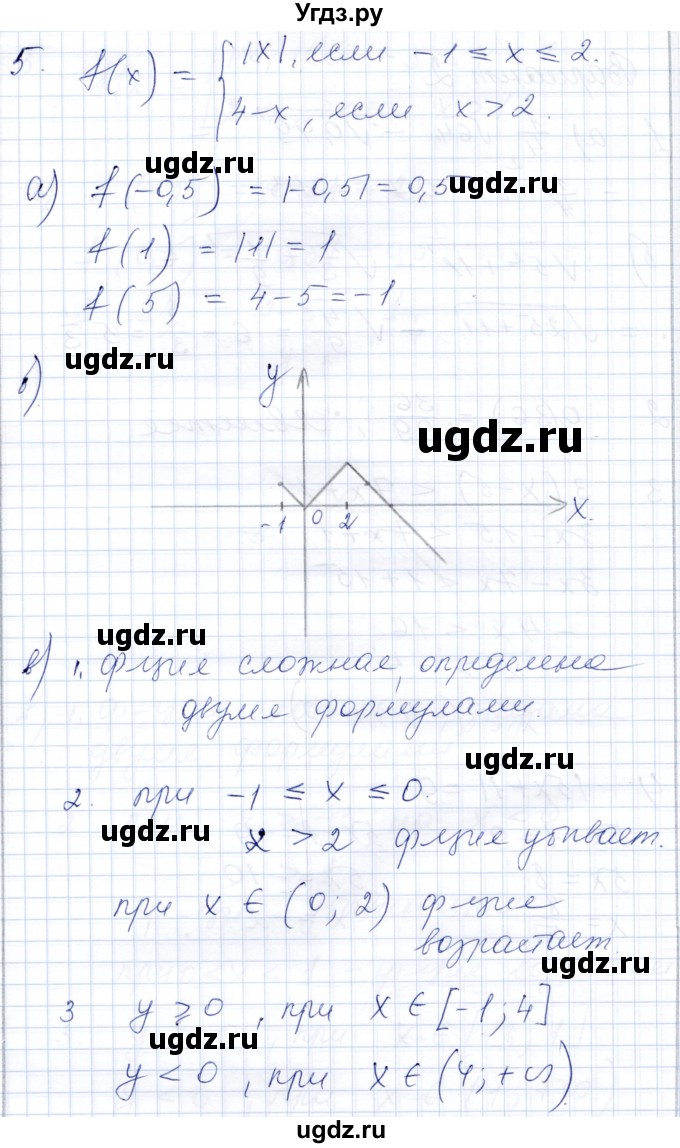 Угдз.ру
5. f(x) = { |x|, если -1 ≤ x ≤ 2.
4-x, если x > 2.
ugdz.ru
ugdz.ru
а) f(-0,5) = |-0,5| = 0,5
f(1) = |1| = 1
f(5) = 4-5 = -1.
ugdz.ru
б)
y
ugdz.ru
-1 0 2 x.
ugdz.ru
в) 1. Ф-ция сложная, определена
двумя формулами.
ugdz.ru
2. при -1 ≤ x ≤ 0.
ugdz.ru
x > 2 ф-ция убывает.
при x ∈ (0; 2) ф-ция
возрастает.
ugdz.ru
3 y ≥ 0, при x ∈ [-1; 4]
ugdz.ru
y < 0, при x ∈ (4; +∞)